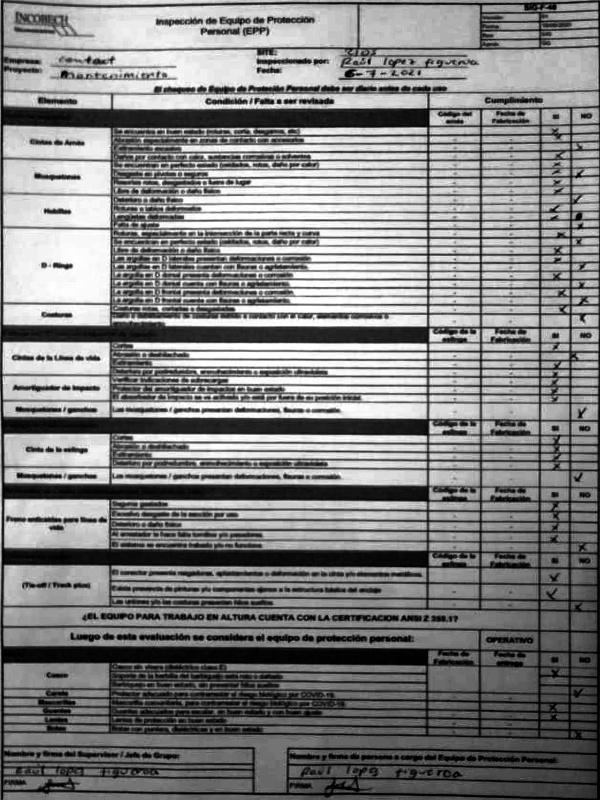 INCOBECH
Inspección de Equipo de Protección Personal (EPP)
SIG-F-48
Empresa: contact
Proyecto: Mantenimiento
SITE: CIOS
Inspeccionado por: Raúl lopez figueroa
Fecha: 6-7-2021
El chequeo de Equipo de Protección Personal debe ser diario antes de cada uso
Elemento Condición / Falta a ser revisada Cumplimiento
Código del arnés Fecha de Fabricación SI NO
Cintas de Arnés
Se encuentra en buen estado (roturas, corte, desgarros, etc)
Abrasión especialmente en zonas de contacto con accesorios
Estiramiento excesivo
Daños por contacto con calor, sustancias corrosivas o solventes
Mosquetones
Se encuentran en perfecto estado (oxidados, rotos, daño por calor)
Desgaste en pivotes o seguros
Resortes rotos, desgastados o fuera de lugar
Libre de deformación o daño físico
Hebillas
Deterioro o daño físico
Roturas o tablos deformados
Lengüetas deformadas
Falta de ajuste
D - Rings
Roturas, especialmente en la intersección de la parte recta y curva
Se encuentran en perfecto estado (oxidados, rotos, daño por calor)
Libre de deformación o daño físico
Las argollas en D laterales presentan deformaciones o corrosión
Las argollas en D laterales cuentan con fisuras o agrietamiento.
La argolla en D dorsal presenta deformaciones o corrosión
La argolla en D dorsal cuenta con fisuras o agrietamiento.
La argolla en D frontal presenta deformaciones o corrosión
La argolla en D frontal cuenta con fisuras o agrietamiento.
Costuras
Costuras rotas, cortadas o desgastadas
Código de la eslinga Fecha de Fabricación SI NO
Cintas de la Línea de vida
Cortes
Abrasión o deshilachado
Estiramiento
Deterioro por podredumbre, enmohecimiento o exposición ultravioleta
Amortiguador de impacto
Verificar indicaciones de sobrecargas
Protector del amortiguador de impactos en buen estado
El absorbedor de impacto se va activado y/o está por fuera de su posición inicial.
Mosquetones / ganchos
Los mosquetones / ganchos presentan deformaciones, fisuras o corrosión.
Código de la eslinga Fecha de Fabricación SI NO
Cinta de la eslinga
Cortes
Abrasión o deshilachado
Estiramiento
Deterioro por podredumbre, enmohecimiento o exposición ultravioleta
Mosquetones / ganchos
Los mosquetones / ganchos presentan deformaciones, fisuras o corrosión.
Código de la eslinga Fecha de Fabricación SI NO
Freno anticaídas para línea de vida
Seguros gastados
Excesivo desgaste de la sección por uso.
Deterioro o daño físico
Al arrestador le hace falta tornillos y/o pasadores.
El sistema se encuentra trabado y/o no funciona.
Código de la eslinga Fecha de Fabricación SI NO
(Tie-off / Track plus)
El conector presenta rasgaduras, aplastamientos o deformación en la cinta y/o elementos metálicos.
Existe presencia de pinturas y/o componentes ajenos a la estructura básica del anclaje
Las uniones y/o las costuras presentan hilos sueltos.
¿EL EQUIPO PARA TRABAJO EN ALTURA CUENTA CON LA CERTIFICACION ANSI Z 359.1?
Luego de esta evaluación se considera el equipo de protección personal: OPERATIVO
Fecha de Fabricación Fecha de entrega SI NO
Casco
Casco sin visera (dieléctrico clase E)
Soporte de la barbilla del barbiquejo está roto o dañado
Barbiquejo en buen estado, sin presentar hilos sueltos
Careta
Protector adecuado para contrarrestar el riesgo biológico por COVID-19.
Mascarillas
Mascarilla comunitaria, para contrarrestar el riesgo biológico por COVID-19.
Guantes
Guantes adecuados para escalar, en buen estado y con buen ajuste
Lentes
Lentes de protección en buen estado
Botas
Botas con puntera, dieléctricas y en buen estado
Nombre y firma del Supervisor / Jefe de Grupo:
Raúl lopez figueroa
FIRMA
Nombre y firma de persona a cargo del Equipo de Protección Personal:
Raúl lopez figueroa
FIRMA